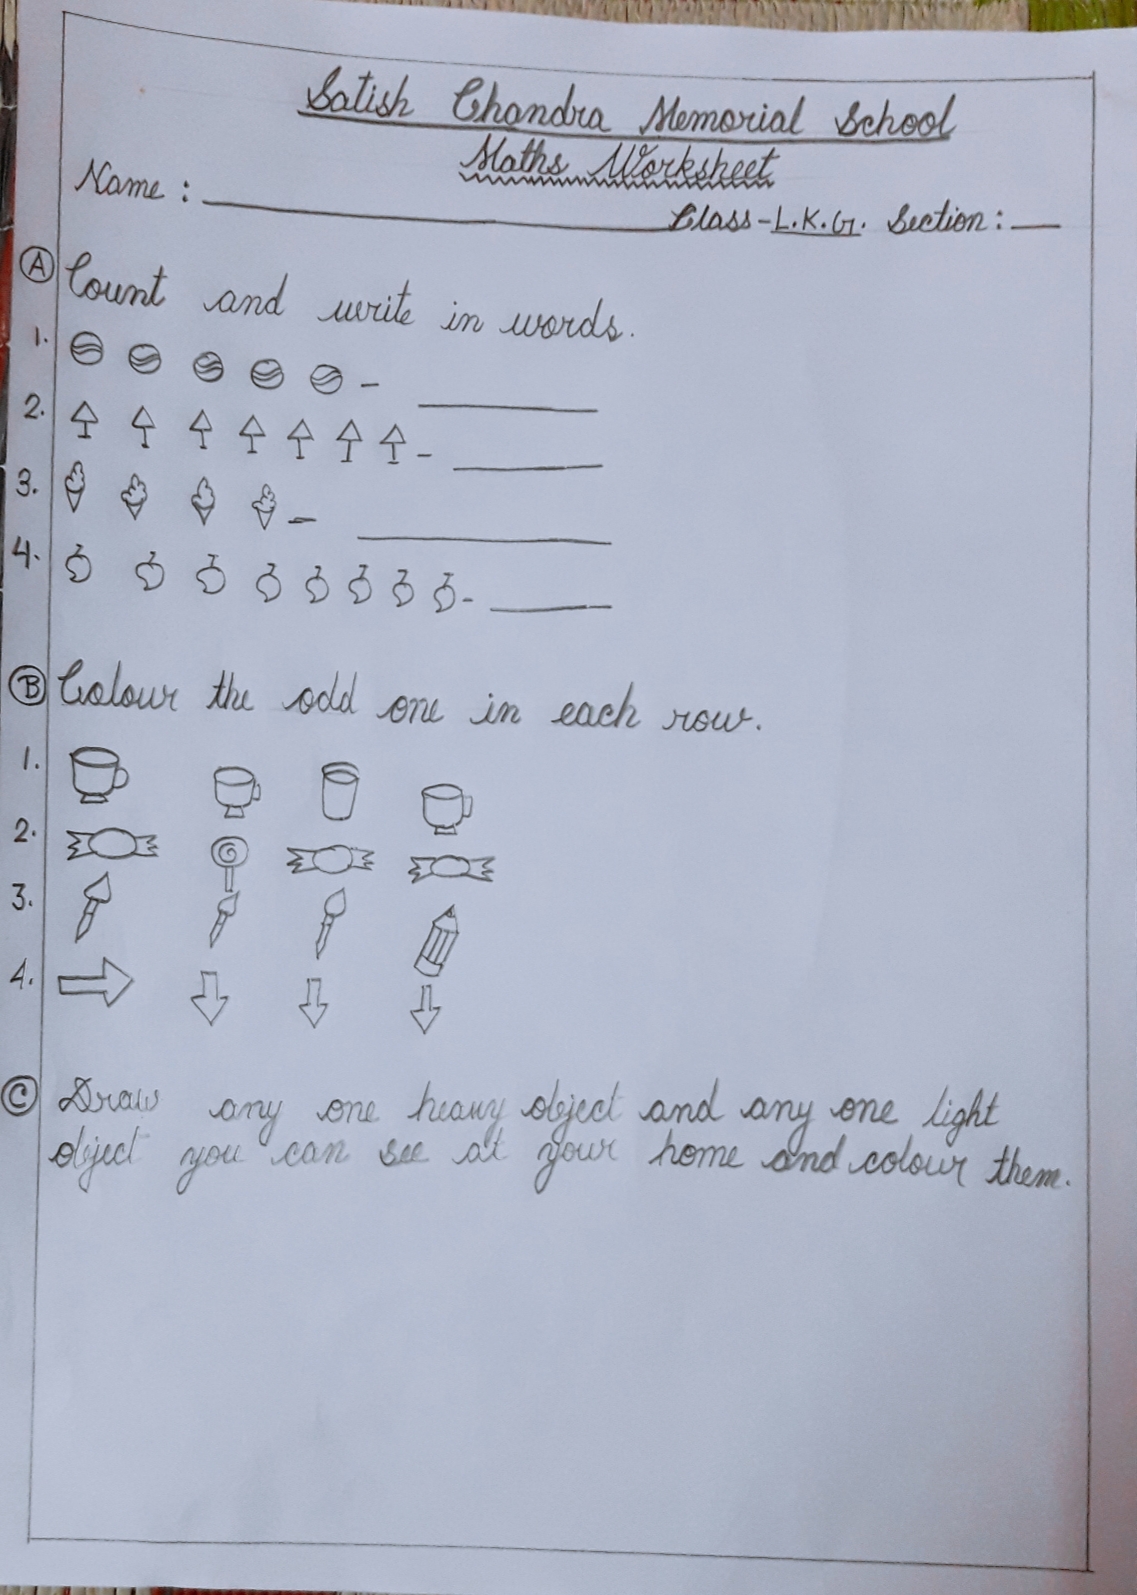 Satish Chandra Memorial School
Maths Worksheet
Name : Class - L.K.G. Section :
A Count and write in words.
1. -
2. -
3. -
4. -
B Colour the odd one in each row.
1.
2.
3.
4.
C Draw any one heavy object and any one light
object you can see at your home and colour them.